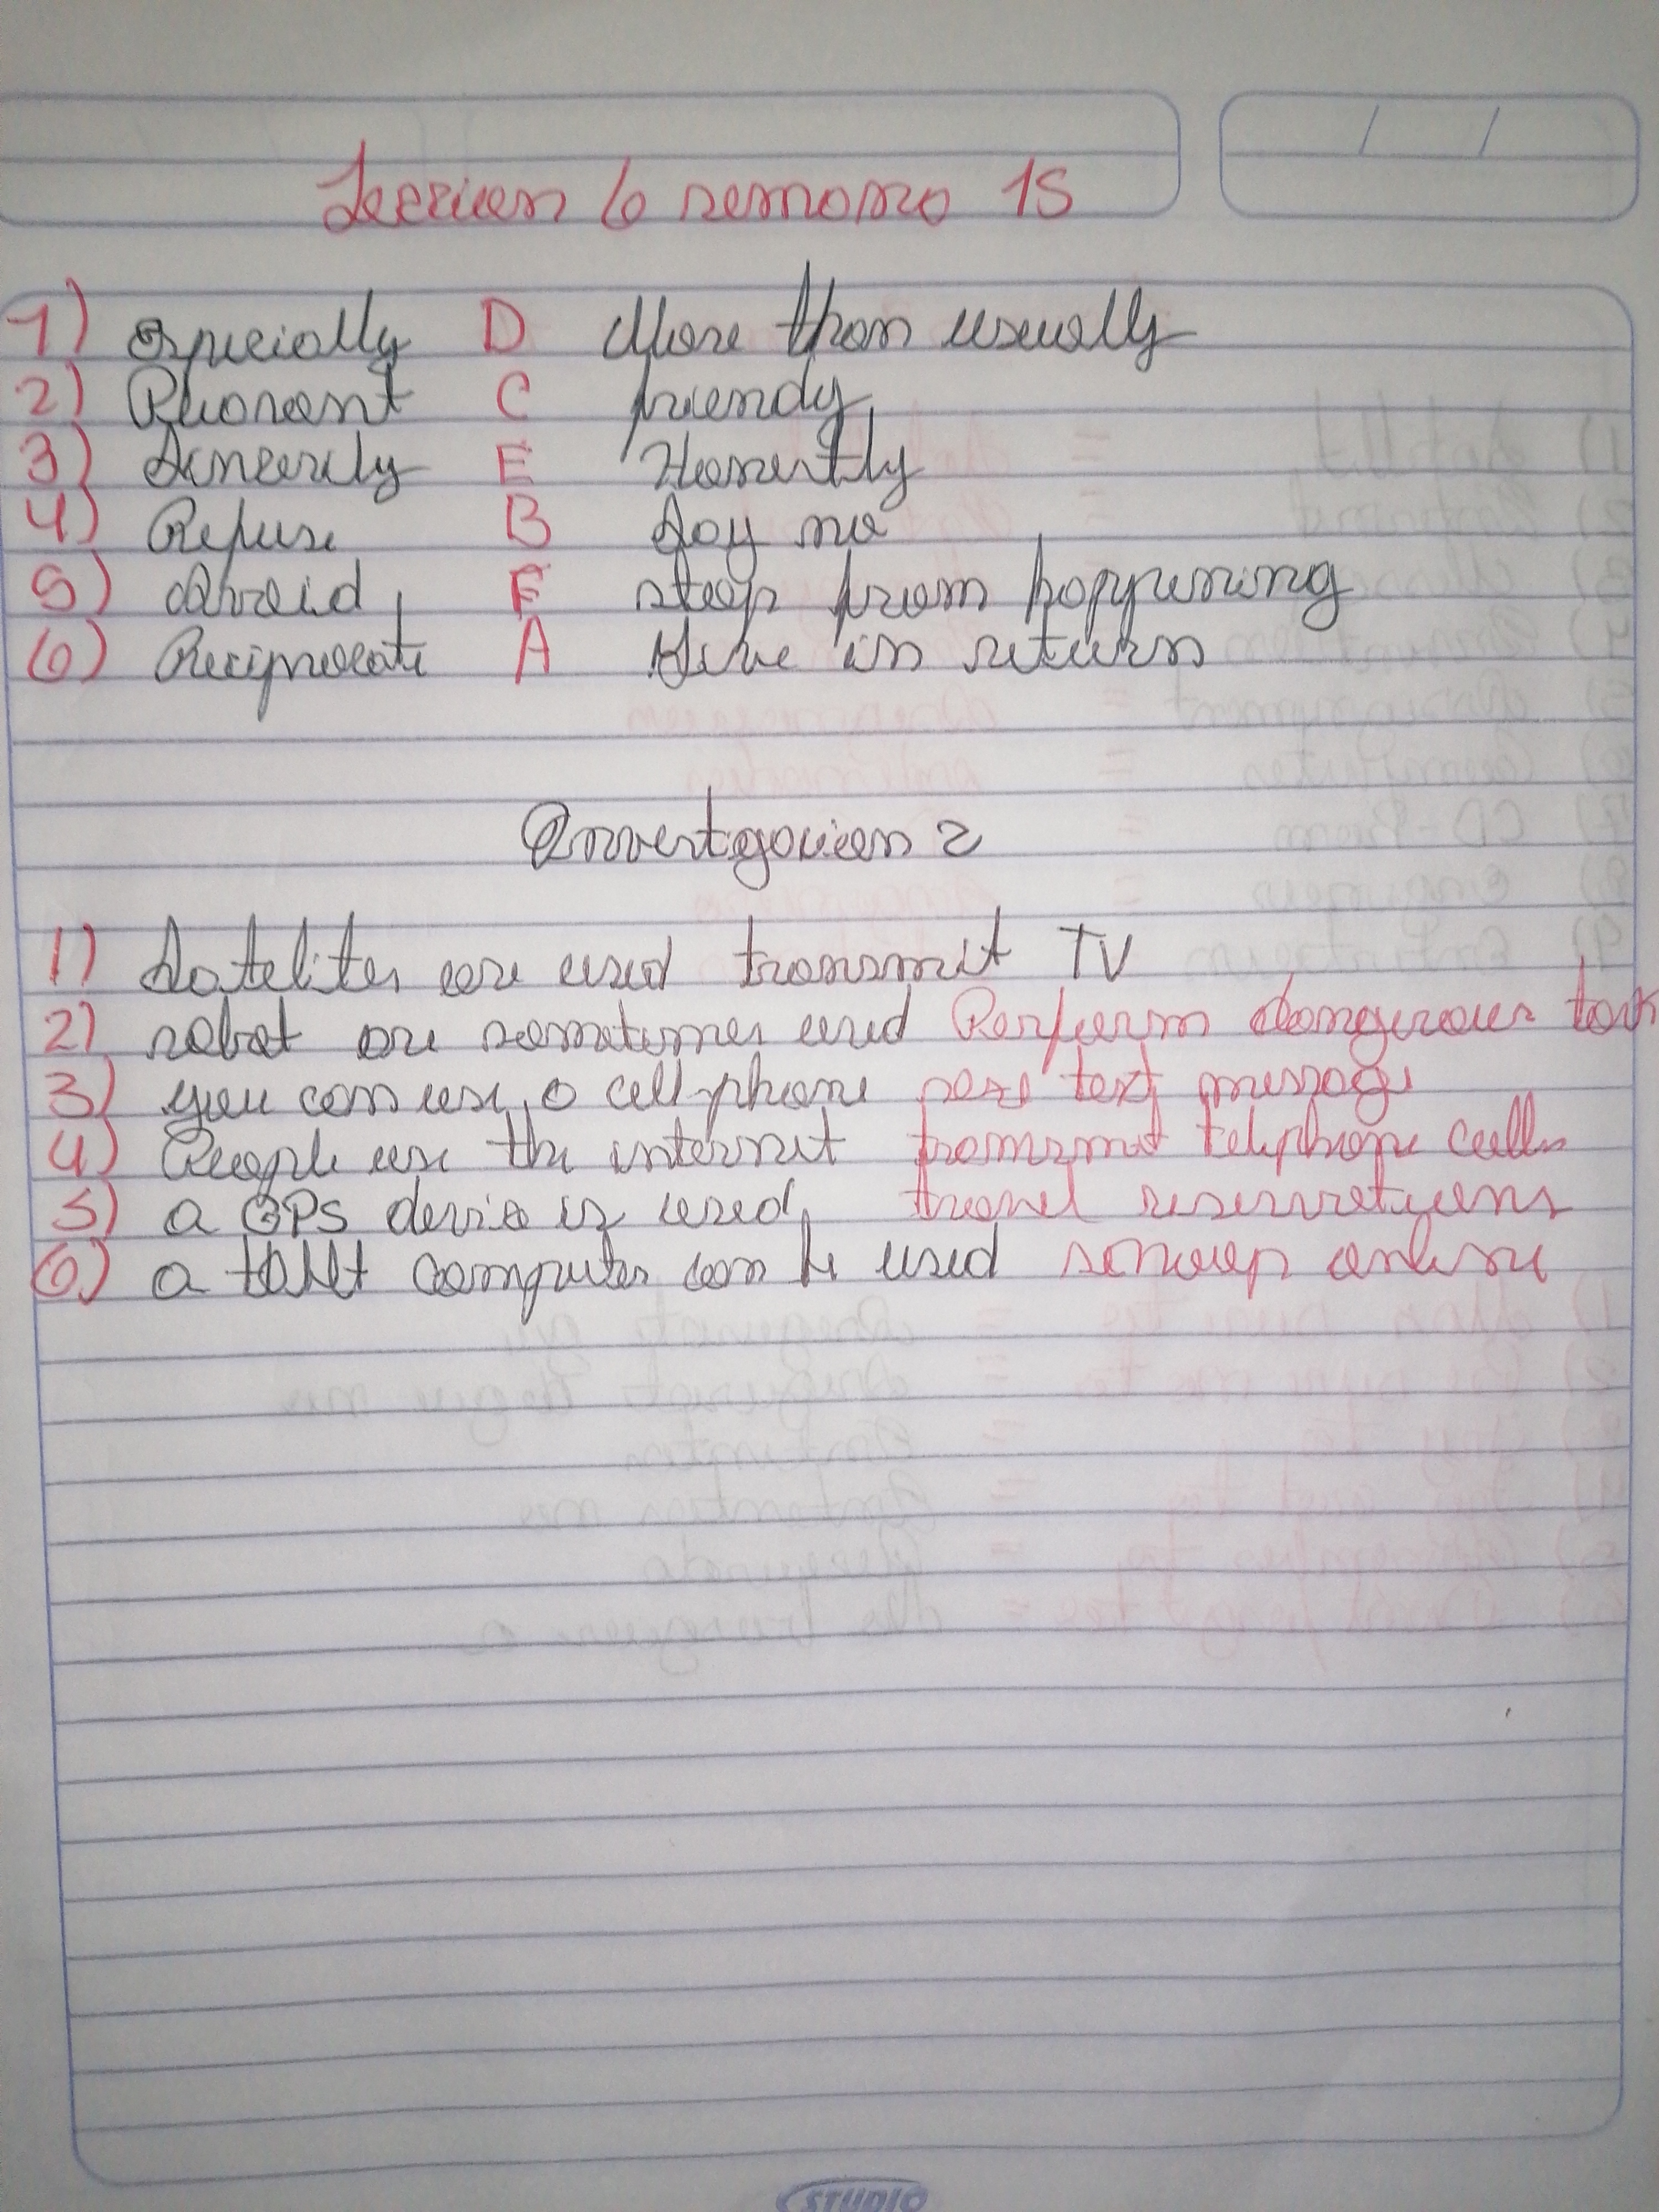 Leccion 6 semana 15
1) Especially D More than usually
2) Pleasant C friendy
3) Sincerely E Honestly
4) Refuse B Say no
5) Avoid F stop from happening
6) Reciprocate A Give in return
Investigacion 2
1) Satelites are used transmit TV
2) robot are sometimes used Perform dangerous task
3) you can use a cellphone text message
4) People use the internet transmit telephone calls
5) a GPS devis is used travel reservetions
6) a tablet computer can be used online
STUDIO